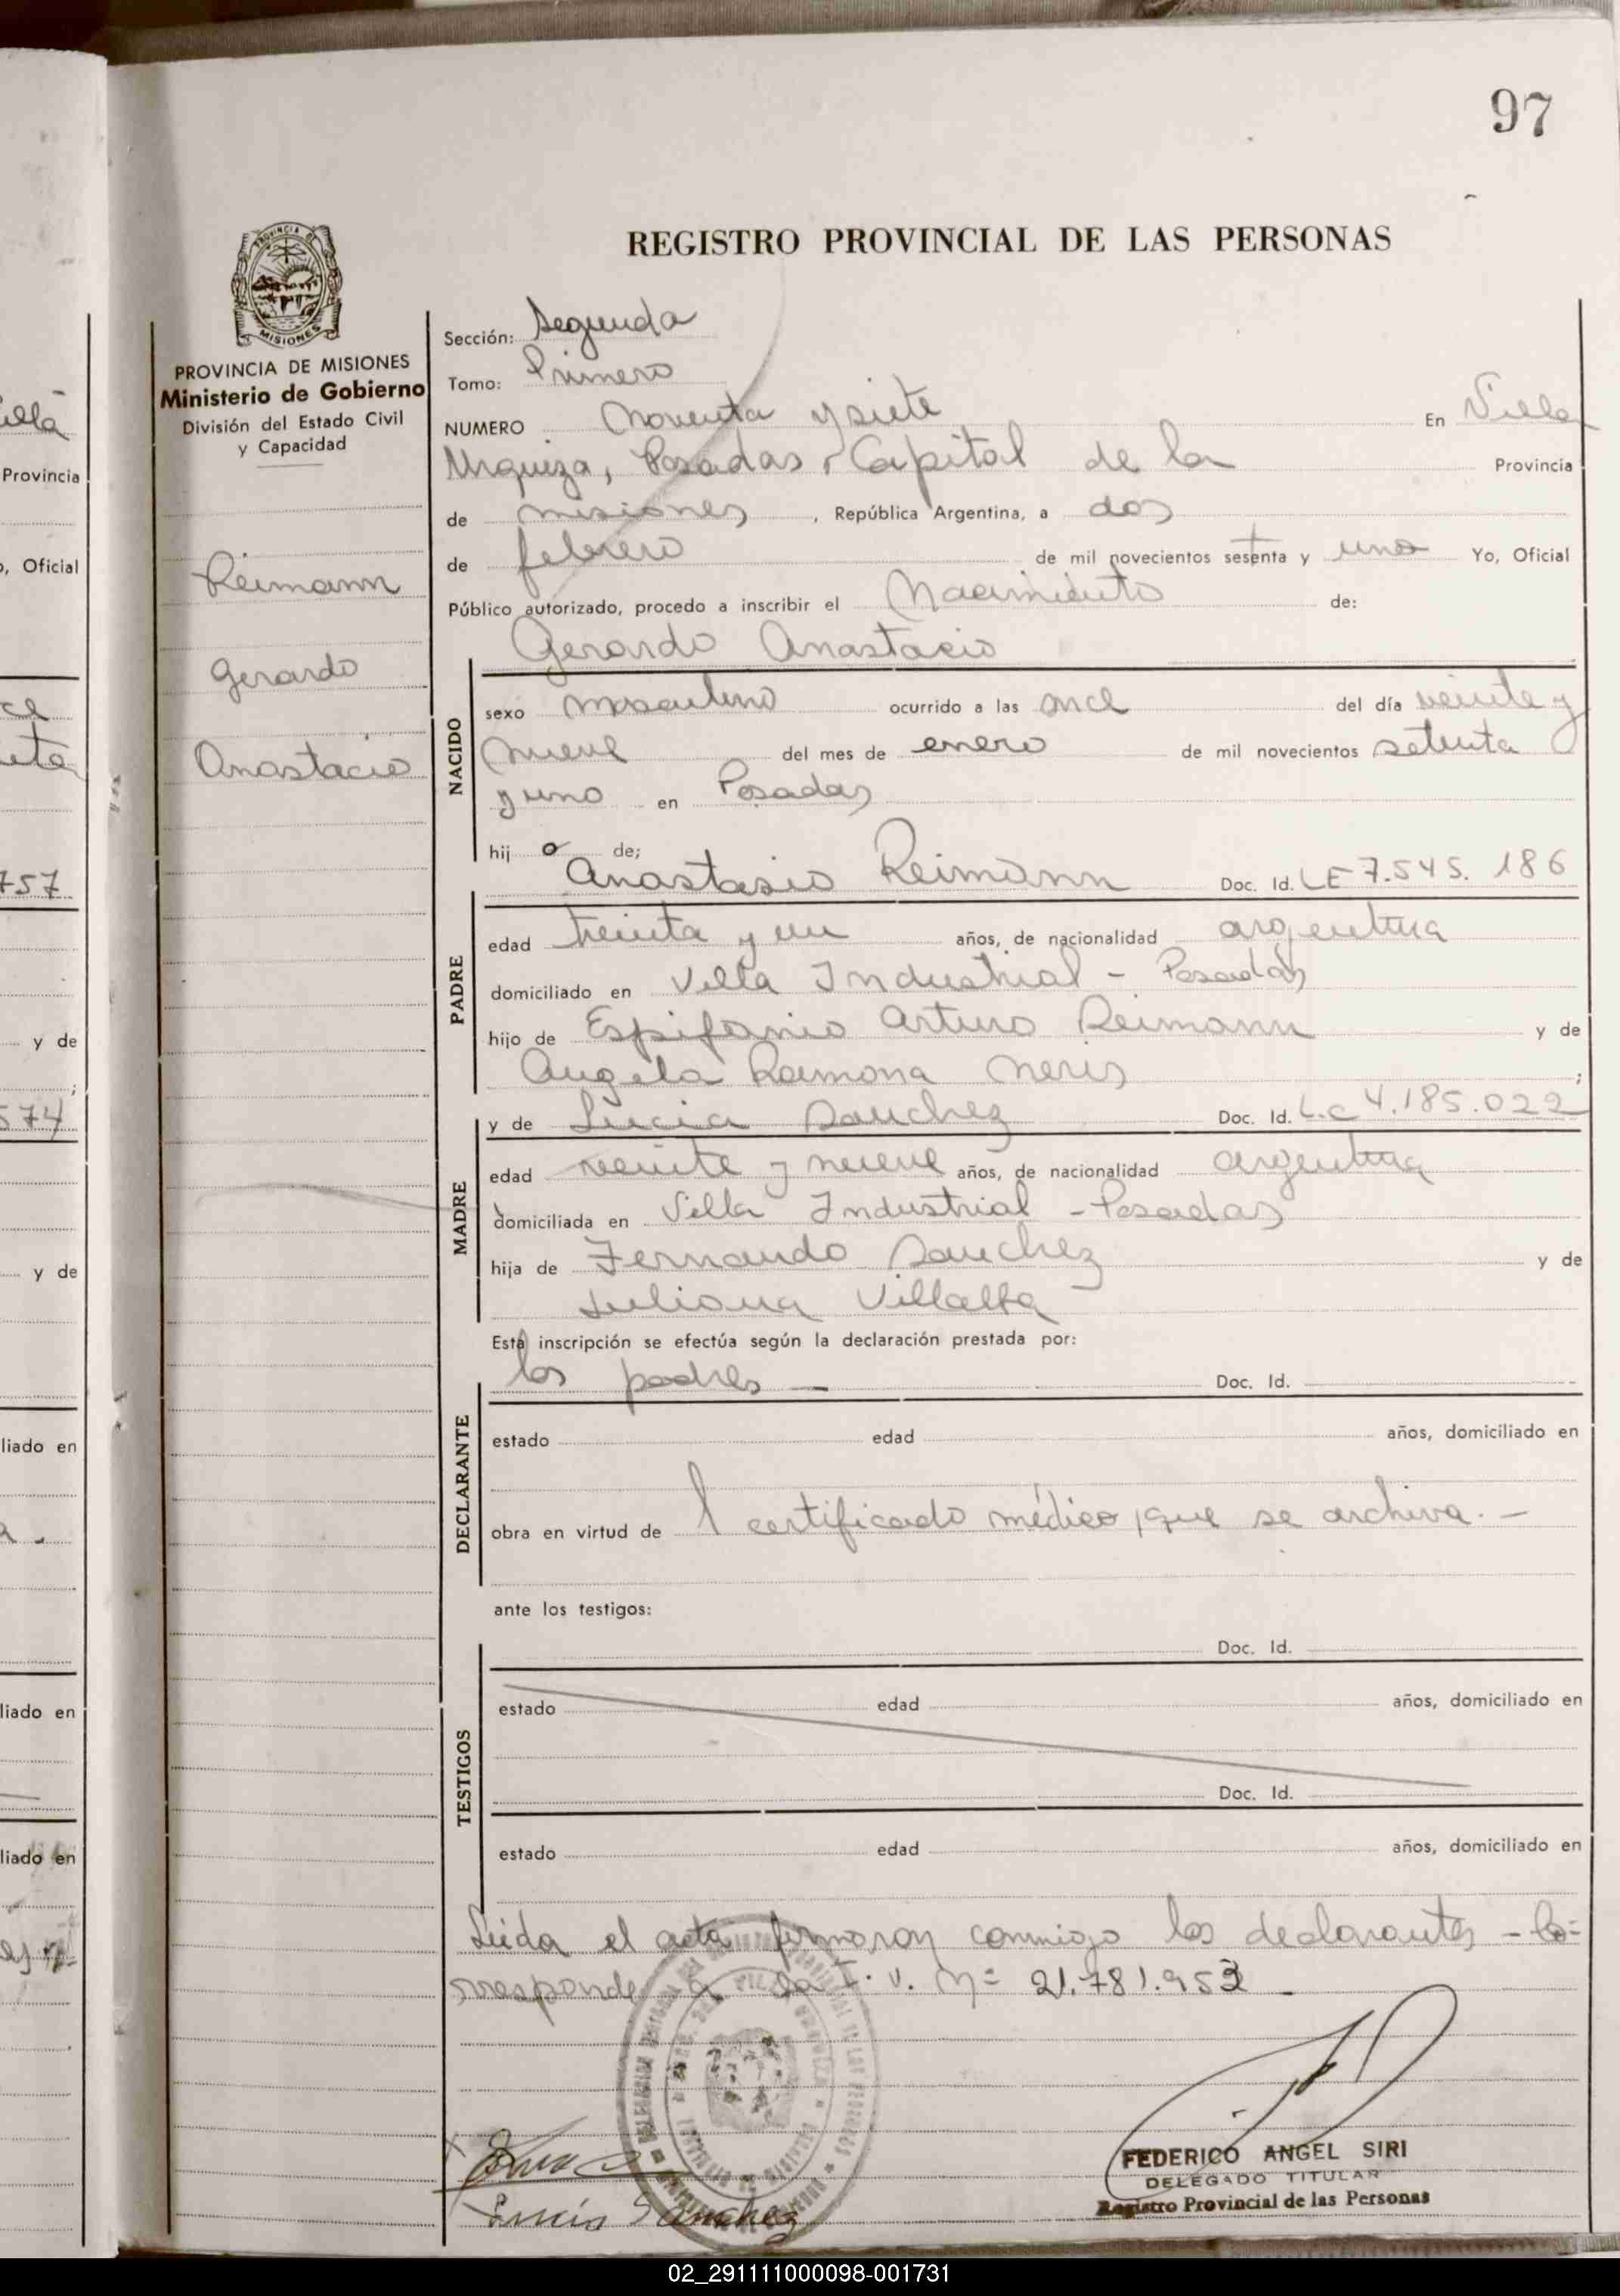 97
REGISTRO PROVINCIAL DE LAS PERSONAS
PROVINCIA DE MISIONES
Ministerio de Gobierno
División del Estado Civil
y Capacidad
Reimann
Gerardo
Anastacio
Sección: Segunda
Tomo: Primero
NUMERO Noventa y siete En Villa
Urquiza, Posadas, Capital de la Provincia
de misiones, República Argentina, a dos
de febrero de mil novecientos setenta y uno Yo, Oficial
Público autorizado, procedo a inscribir el Nacimiento de:
Gerardo Anastacio
NACIDO
sexo masculino ocurrido a las once del día veinte y
nueve del mes de enero de mil novecientos setenta
y uno en Posadas
hij o de;
Anastasio Reimann Doc. Id. LE 7.545.186
PADRE
edad treinta y un años, de nacionalidad argentina
domiciliado en Villa Industrial - Posadas
hijo de Espifanio Arturo Reimann y de
Angela Ramona Neris ;
y de Lucia Sanchez Doc. Id. L.C 4.185.022
MADRE
edad veinte y nueve años, de nacionalidad argentina
domiciliada en Villa Industrial - Posadas
hija de Fernando Sanchez y de
Juliana Villalba
Esta inscripción se efectúa según la declaración prestada por:
los padres — Doc. Id.
DECLARANTE
estado edad años, domiciliado en
obra en virtud de l certificado médico, que se archiva. -
ante los testigos:
Doc. Id.
TESTIGOS
estado edad años, domiciliado en
Doc. Id.
estado edad años, domiciliado en
Leida el acta firmaron conmigo los declarantes - Co=
rresponde a la I. v. Nº 21.781.953 -
Lucia Sanchez
FEDERICO ANGEL SIRI
DELEGADO TITULAR
Registro Provincial de las Personas
02_291111000098-001731